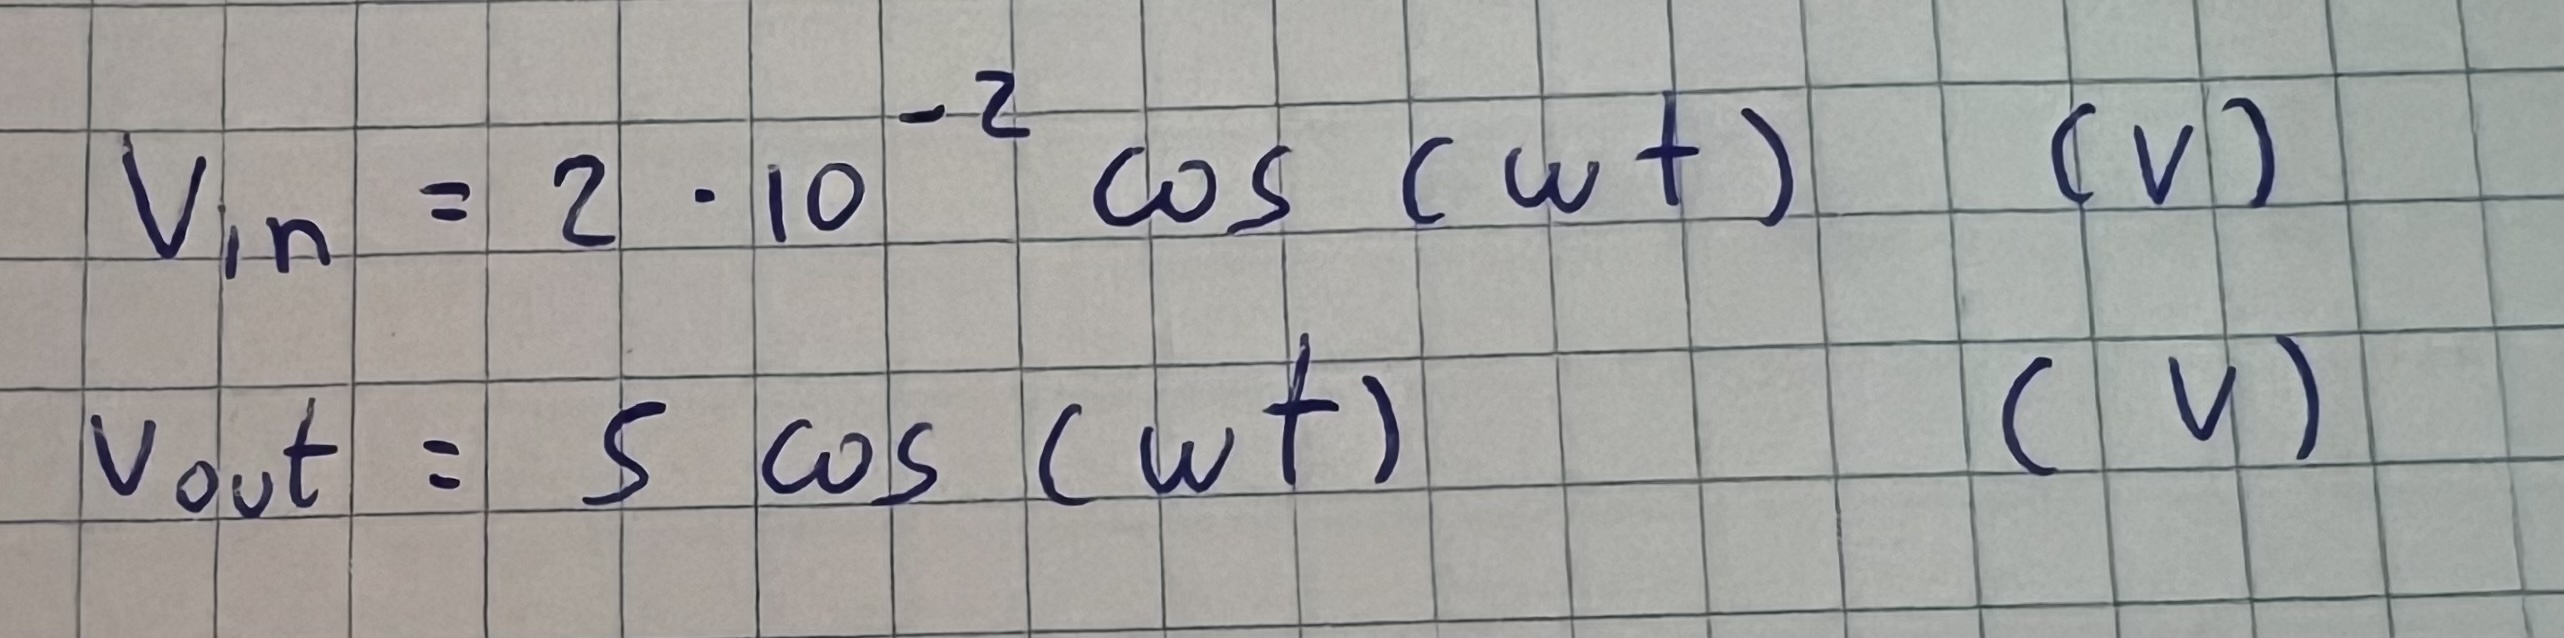 Vin = 2 · 10^-2 cos (wt) (V)
Vout = 5 cos (wt) (V)